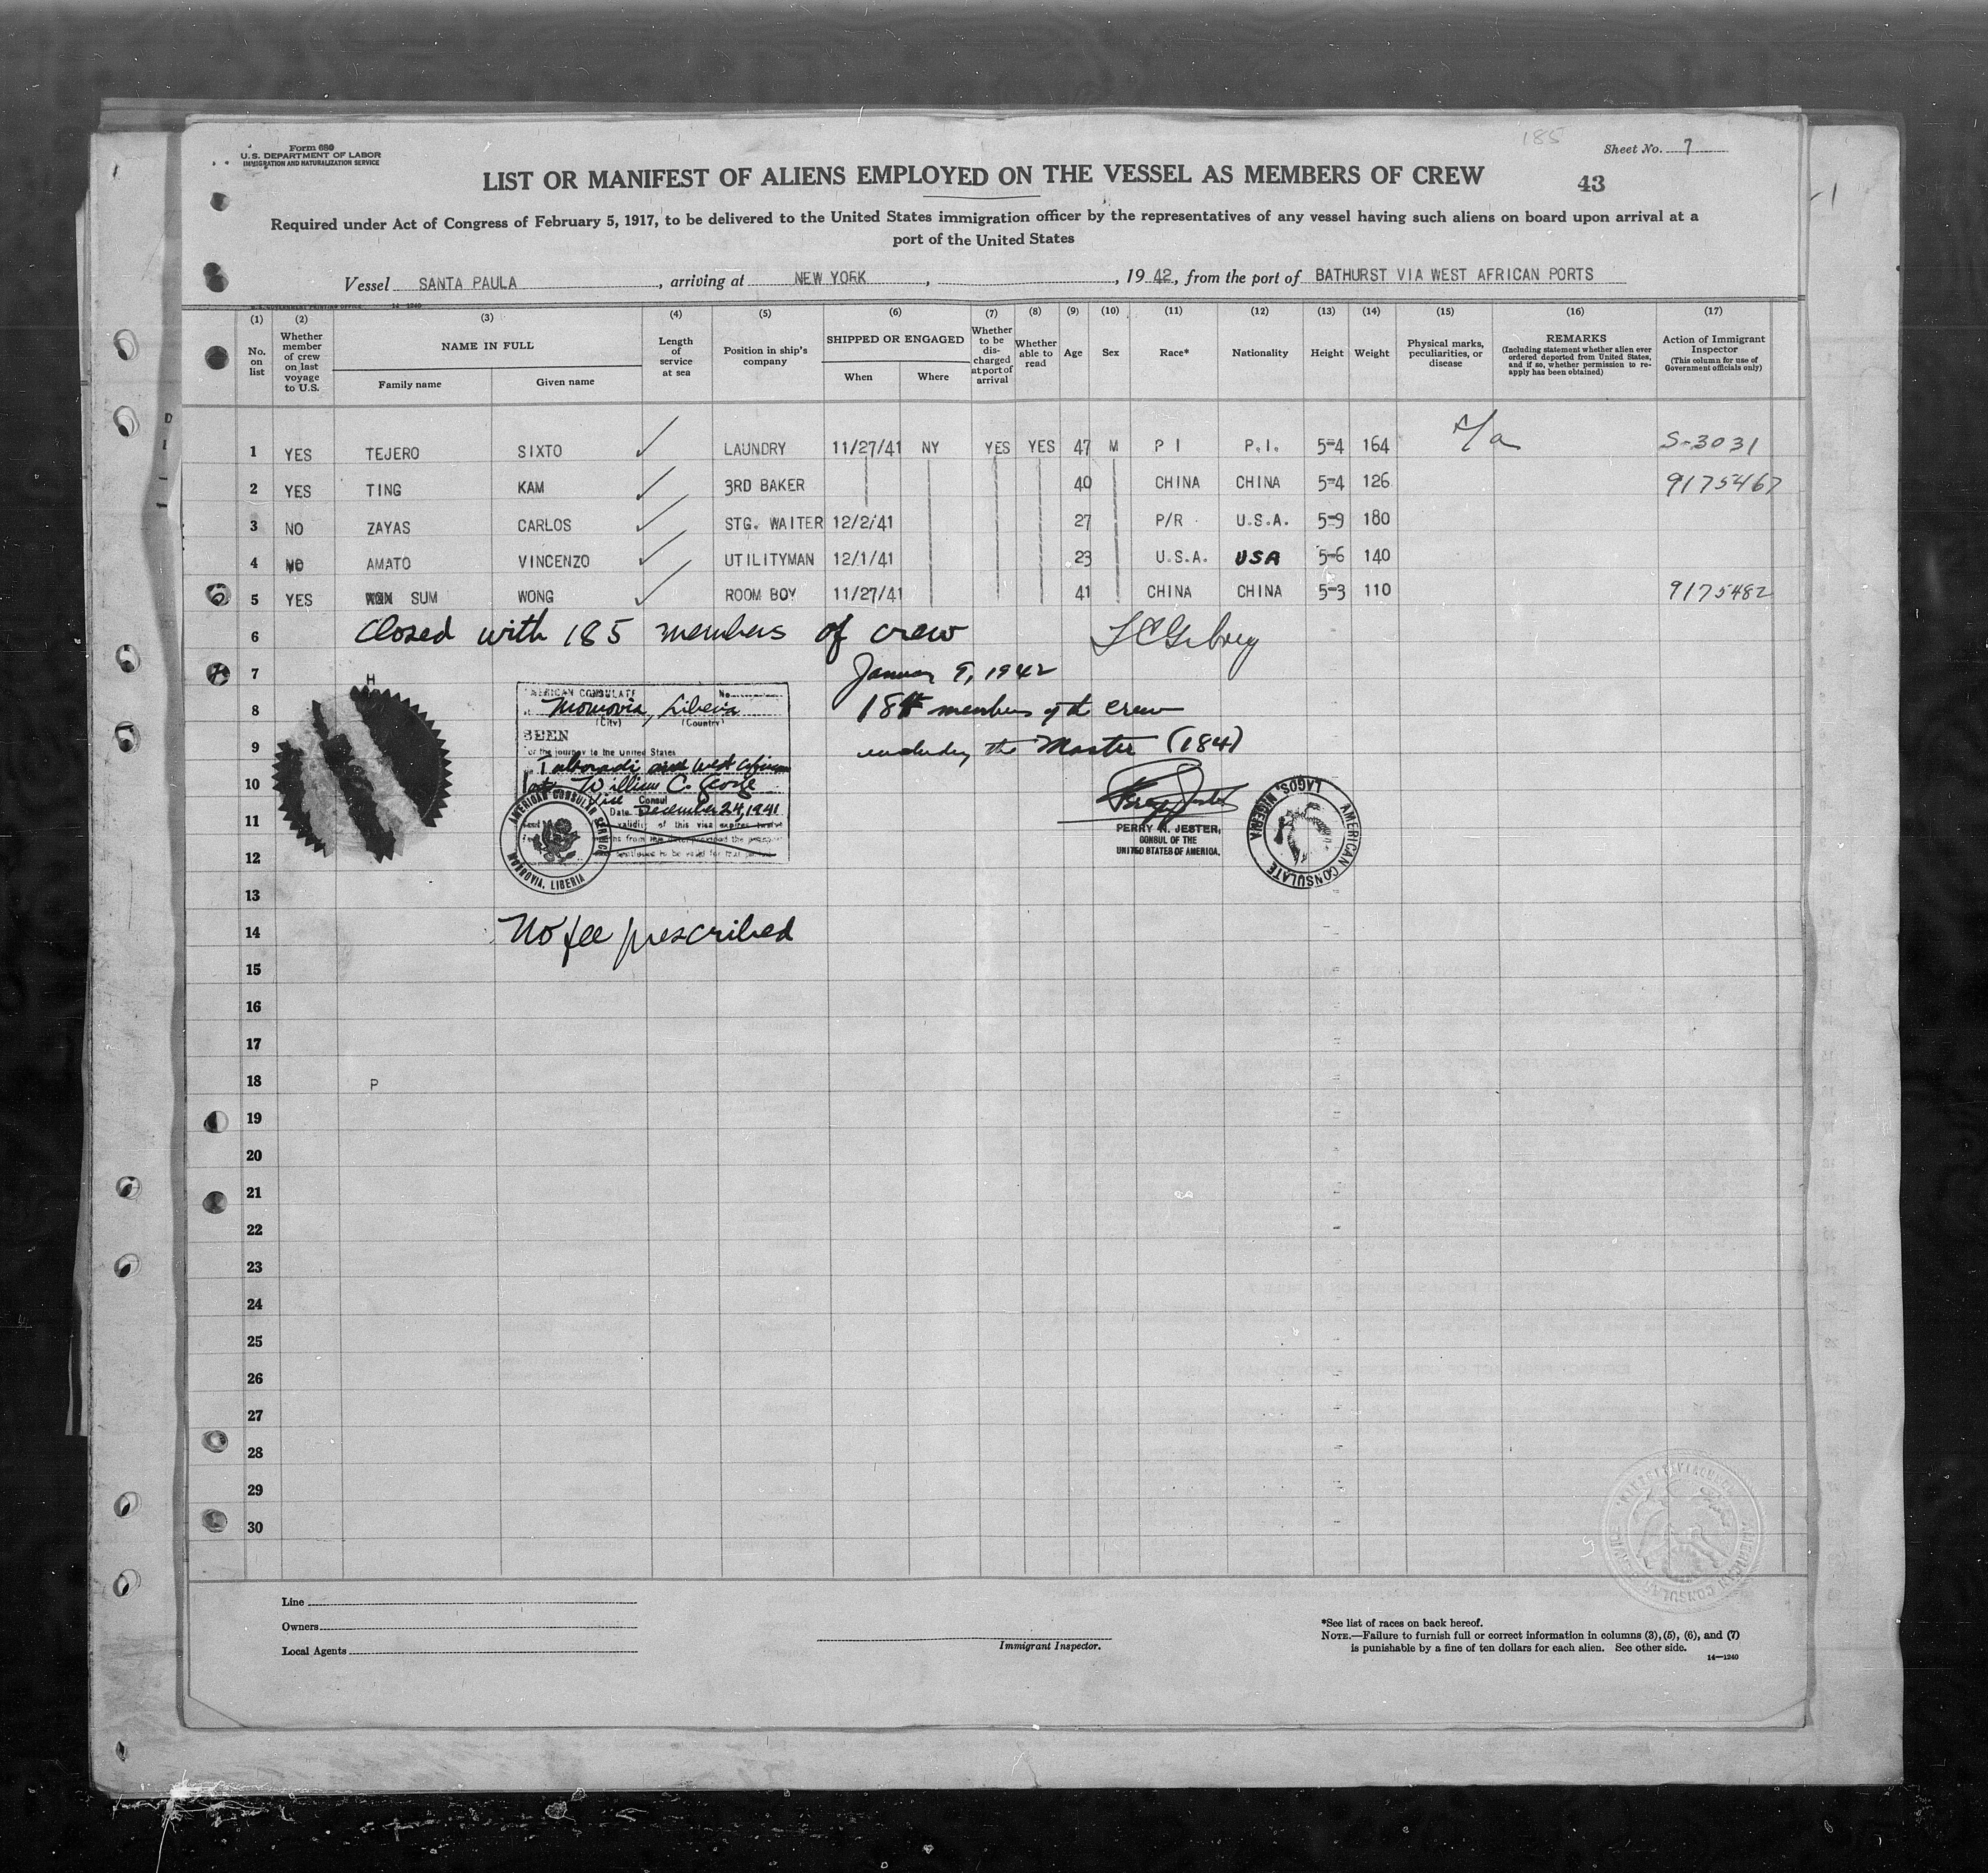 Form 680
U.S. DEPARTMENT OF LABOR
IMMIGRATION AND NATURALIZATION SERVICE
185
Sheet No. 7
LIST OR MANIFEST OF ALIENS EMPLOYED ON THE VESSEL AS MEMBERS OF CREW
43
Required under Act of Congress of February 5, 1917, to be delivered to the United States immigration officer by the representatives of any vessel having such aliens on board upon arrival at a
port of the United States
Vessel SANTA PAULA, arriving at NEW YORK, , 1942, from the port of BATHURST VIA WEST AFRICAN PORTS
(1) (2) (3) (4) (5) (6) (7) (8) (9) (10) (11) (12) (13) (14) (15) (16) (17)
No. on list
Whether member of crew on last voyage to U.S.
NAME IN FULL
Family name
Given name
Length of service at sea
Position in ship's company
SHIPPED OR ENGAGED
When
Where
Whether to be discharged at port of arrival
Whether able to read
Age
Sex
Race*
Nationality
Height
Weight
Physical marks, peculiarities, or disease
REMARKS
(Including statement whether alien ever ordered deported from United States, and if so, whether permission to re-apply has been obtained)
Action of Immigrant Inspector
(This column for use of Government officials only)
1 YES TEJERO SIXTO LAUNDRY 11/27/41 NY YES YES 47 M P I P.I. 5-4 164 S-3031
2 YES TING KAM 3RD BAKER 40 CHINA CHINA 5-4 126 9175467
3 NO ZAYAS CARLOS STG. WAITER 12/2/41 27 P/R U.S.A. 5-9 180
4 NO AMATO VINCENZO UTILITYMAN 12/1/41 23 U.S.A. USA 5-6 140
5 YES SUM WONG ROOM BOY 11/27/41 41 CHINA CHINA 5-3 110 9175482
6 Closed with 185 members of crew
7 January 9, 1942
H
AMERICAN CONSULATE No.
Monrovia, Liberia
(City) (Country)
8 184 members of the crew
BEEN
9 including the Master (184)
for the journey to the United States
Takoradi and West African
10 William C. George
Vice Consul
11 Date December 24, 1941
validity of this visa expires twelve
12
AMERICAN CONSULAR SERVICE
MONROVIA, LIBERIA
PERRY N. JESTER,
CONSUL OF THE
UNITED STATES OF AMERICA.
AMERICAN CONSULATE
LAGOS, NIGERIA
13
14 No fee prescribed
15
16
17
18 P
19
20
21
22
23
24
25
26
27
28
29
30
AMERICAN CONSULAR SERVICE
Line
Owners
Local Agents
Immigrant Inspector.
*See list of races on back hereof.
NOTE.—Failure to furnish full or correct information in columns (3), (5), (6), and (7)
is punishable by a fine of ten dollars for each alien. See other side.
14—1240